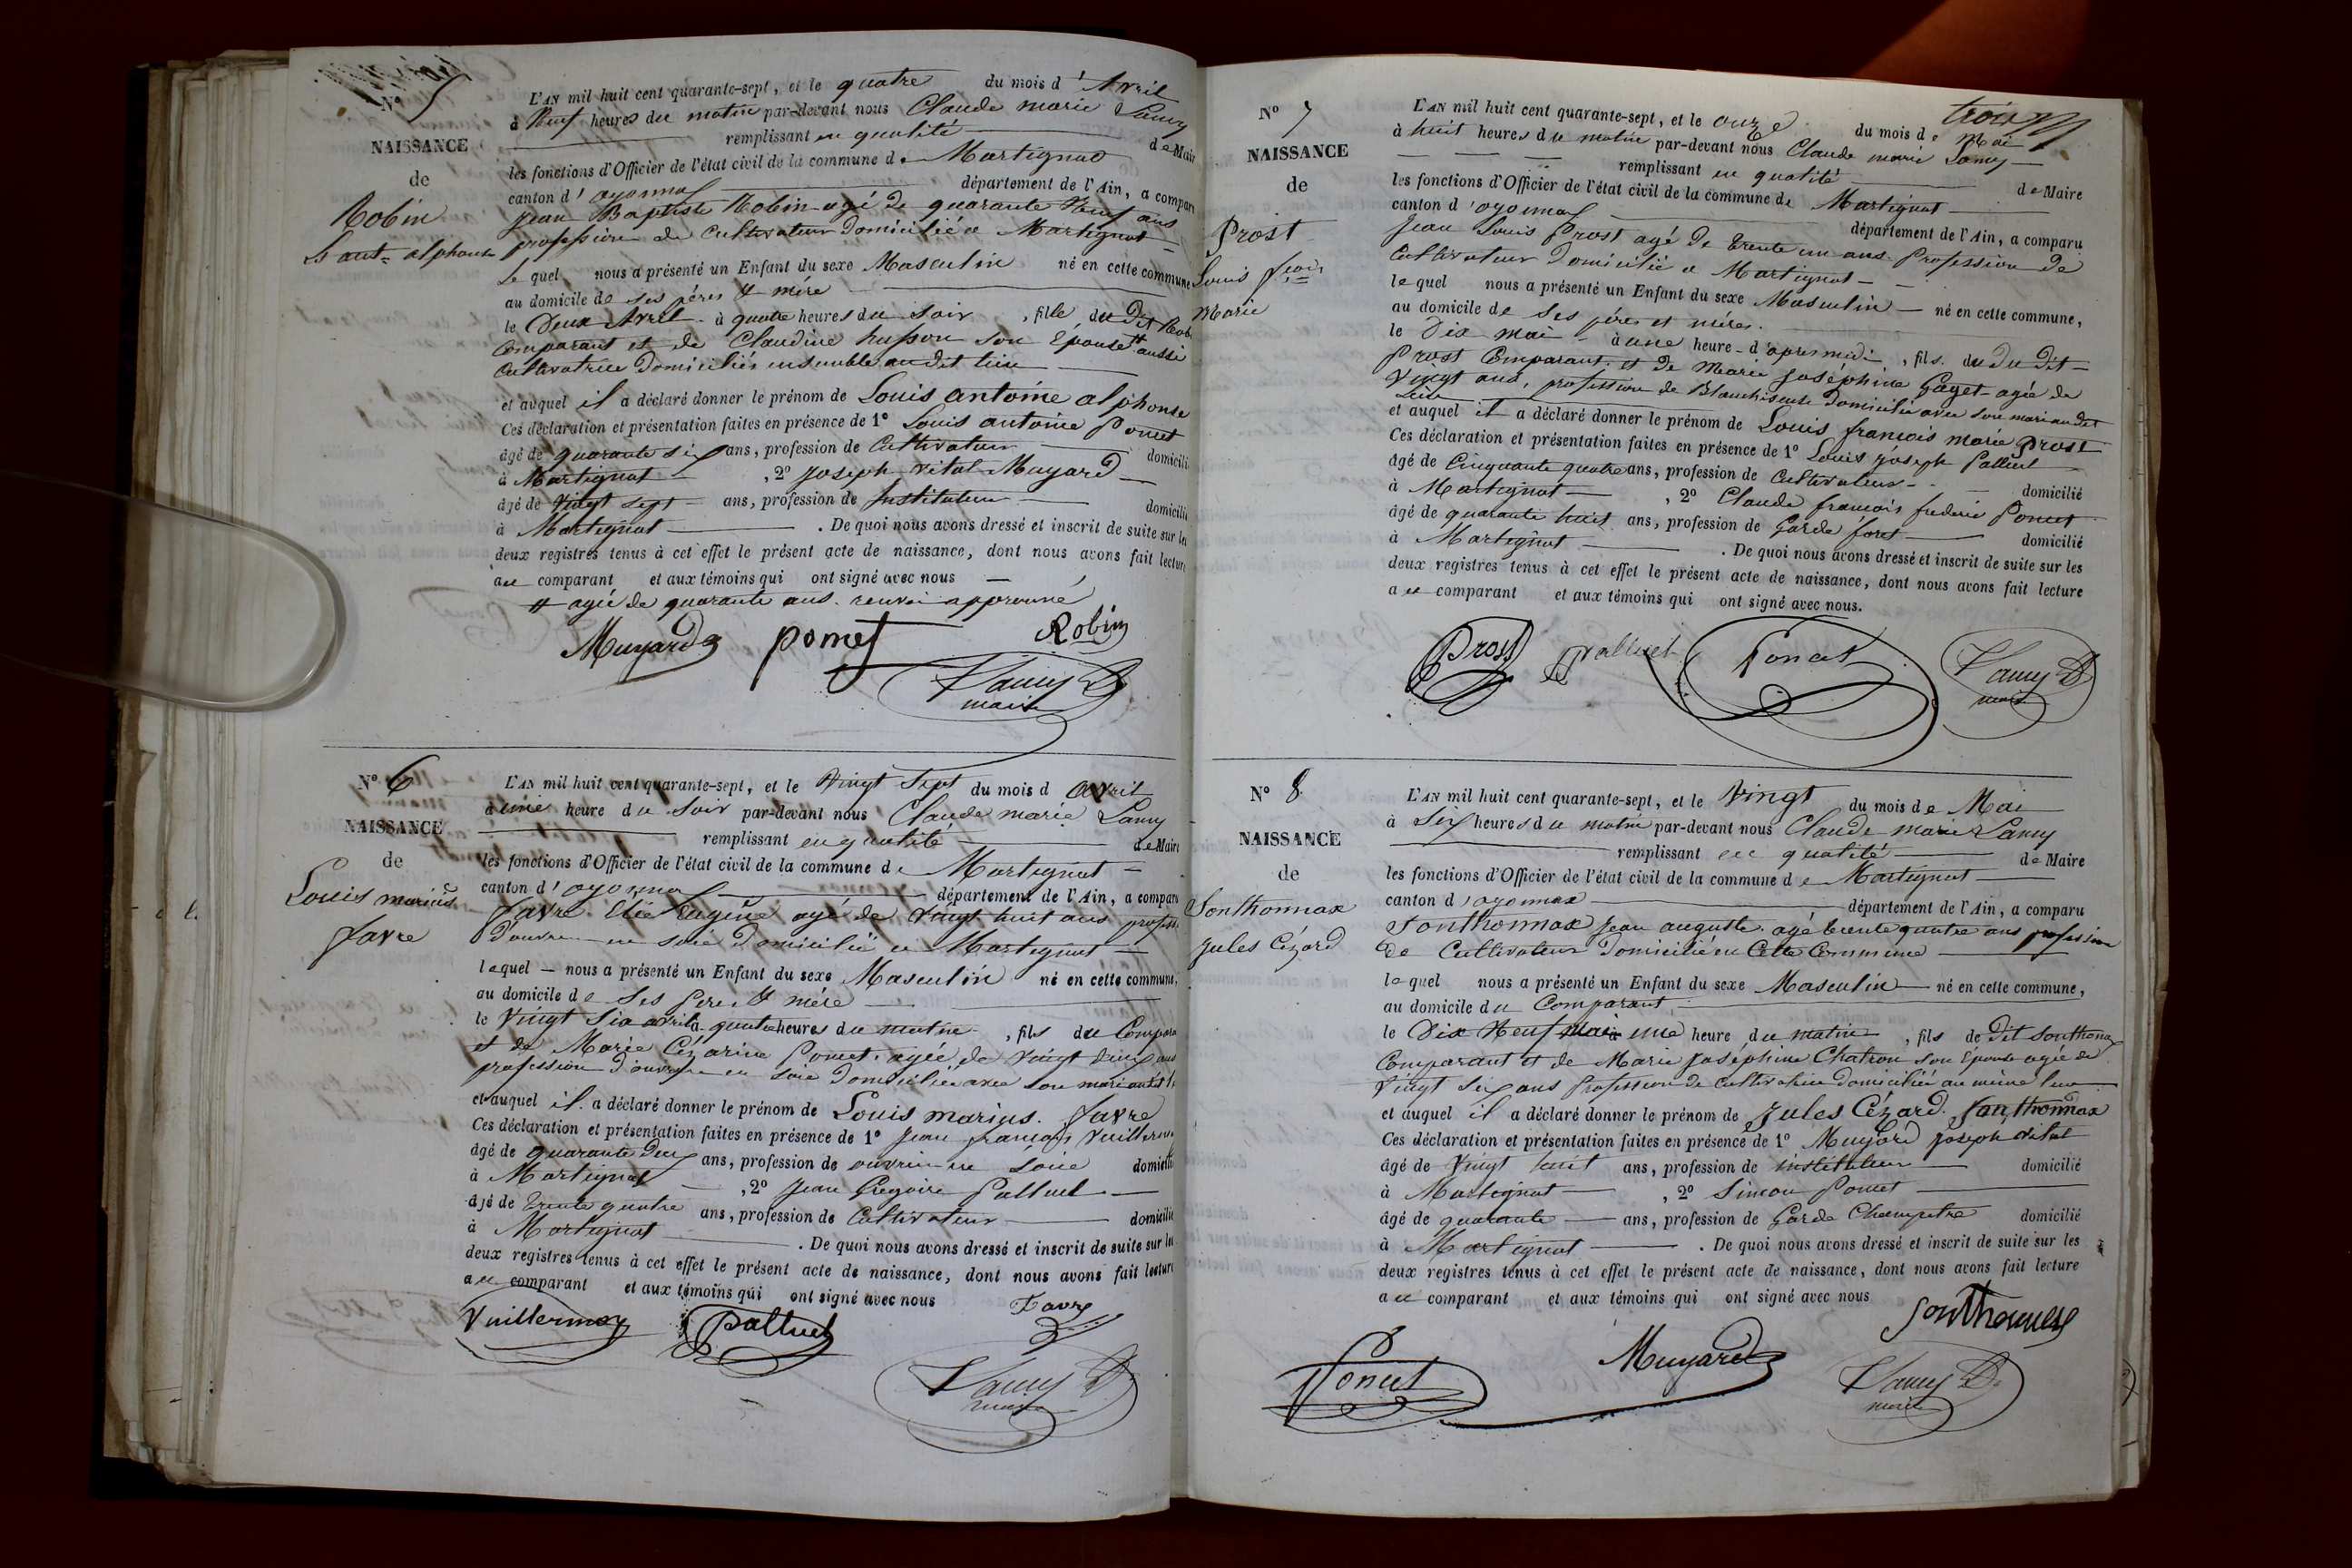 N° 5
NAISSANCE
de
Robin
L. ant. alphonse
L'AN mil huit cent quarante-sept, et le quatre du mois d'Avril
à Neuf heures du matin par-devant nous Claude marie Lamy
remplissant en qualité de Maire
les fonctions d'Officier de l'état civil de la commune de Martignat
canton d'oyonnax département de l'Ain, a comparu
Jean Baptiste Robin agé de quarante Neuf ans
profession de Cultivateur Domicilié a Martignat
Le quel nous a présenté un Enfant du sexe Masculin né en cette commune
au domicile de ses péres & mére
le Deux Avril à quatre heures du soir, fils du Dit Rob
Comparant et de Claudine husson son Epouse # aussi
Cultivatrice Domiciliés ensemble audit lieu
et auquel il a déclaré donner le prénom de Louis antoine alphonse
Ces déclaration et présentation faites en présence de 1° Louis antoine Poncet
âgé de quarante six ans, profession de Cultivateur domicilié
à Martignat, 2° Joseph Vital Muyard
âgé de Vingt sept ans, profession de Instituteur domicilié
à Martignat. De quoi nous avons dressé et inscrit de suite sur les
deux registres tenus à cet effet le présent acte de naissance, dont nous avons fait lecture
au comparant et aux témoins qui ont signé avec nous
# agée de quarante ans. renvoi approuvé
Muyard poncet Robin
Lamy
maire
N° 6
NAISSANCE
de
Louis marius
favre
L'AN mil huit cent quarante-sept, et le Vingt Sept du mois d avril
à une heure du Soir par-devant nous Claude marie Lamy
remplissant en qualité de Maire
les fonctions d'Officier de l'état civil de la commune de Martignat
canton d'oyonnax département de l'Ain, a comparu
favre Elie Eugène agé de Vingt huit ans profess
d'ouvrier en soie Domicilié a Martignat
lequel nous a présenté un Enfant du sexe Masculin né en cette commune,
au domicile de Ses Pere & mére
le Vingt Six avril à quatre heures du matin, fils du Compara
et de Marie Cézarine Poncet agée de Vingt deux ans
profession d'ouvrière en soie Domiciliée avec son mari
et auquel il a déclaré donner le prénom de Louis marius. favre
Ces déclaration et présentation faites en présence de 1° Jean françois Vuillermo
âgé de quarante Deux ans, profession de ouvrier en Soie domicilié
à Martignat, 2° Jean Gregoire Palluel
âgé de Trente quatre ans, profession de Cultivateur domicilié
à Martignat. De quoi nous avons dressé et inscrit de suite sur les
deux registres tenus à cet effet le présent acte de naissance, dont nous avons fait lecture
au comparant et aux témoins qui ont signé avec nous
Vuillermoz Palluel Favre
Lamy
maire
trois
N° 7
NAISSANCE
de
Prost
Louis fçois
Marie
L'AN mil huit cent quarante-sept, et le onze du mois de Mai
à huit heures du matin par-devant nous Claude marie Lamy
remplissant en qualité de Maire
les fonctions d'Officier de l'état civil de la commune de Martignat
canton d'oyonnax département de l'Ain, a comparu
Jean Louis Prost agé de Trente un ans Profession de
Cultivateur Domicilié a Martignat
le quel nous a présenté un Enfant du sexe Masculin né en cette commune,
au domicile de ses péres et méres
le Dix mai à une heure d'apres midi, fils du du Dit
Prost Comparant, et de Marie Joséphine Gaget agée de
Vingt ans, profession de Blanchiseuse Domiciliée avec son mari audit
Lieu
et auquel il a déclaré donner le prénom de Louis francois marie Prost
Ces déclaration et présentation faites en présence de 1° Louis joseph Palluel
âgé de Cinquante quatre ans, profession de Cultivateur domicilié
à Martignat, 2° Claude françois frederic Poncet
âgé de quarante huit ans, profession de Garde foret domicilié
à Martignat. De quoi nous avons dressé et inscrit de suite sur les
deux registres tenus à cet effet le présent acte de naissance, dont nous avons fait lecture
au comparant et aux témoins qui ont signé avec nous.
Prost Palluel Poncet Lamy
maire
N° 8
NAISSANCE
de
Sonthonnax
Jules Cézard
L'AN mil huit cent quarante-sept, et le Vingt du mois de Mai
à Six heures du matin par-devant nous Claude marie Lamy
remplissant en qualité de Maire
les fonctions d'Officier de l'état civil de la commune de Martignat
canton d'oyonnax département de l'Ain, a comparu
Sonthonnax Jean auguste agé trente quatre ans profession
de Cultivateur Domicilié en Cette Commune
le quel nous a présenté un Enfant du sexe Masculin né en cette commune,
au domicile du Comparant
le Dix Neuf mai à une heure du matin, fils de Dit Sonthonax
Comparant et de Marie Joséphine Chatron Son Epouse agée de
Vingt Six ans Profession de cultivatrice domiciliée au même lieu
et auquel il a déclaré donner le prénom de Jules Cézard. Santhonnax
Ces déclaration et présentation faites en présence de 1° Muyard Joseph Vital
âgé de Vingt huit ans, profession de instituteur domicilié
à Martignat, 2° Simeon Poncet
âgé de quarante ans, profession de Garde Champetre domicilié
à Martignat. De quoi nous avons dressé et inscrit de suite sur les
deux registres tenus à cet effet le présent acte de naissance, dont nous avons fait lecture
au comparant et aux témoins qui ont signé avec nous
Sonthonnax
Poncet Muyard Lamy
maire